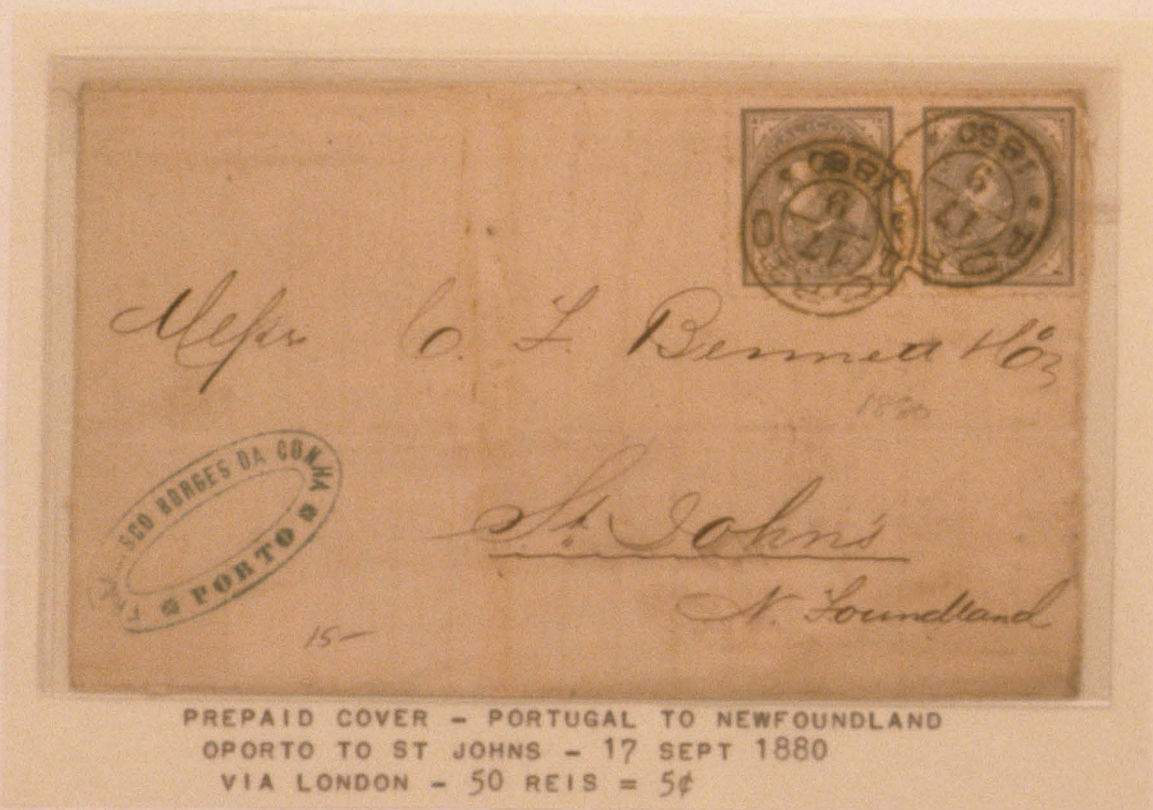 1880
17
9
1880
17
9
Messrs C. F. Bennett & Co
1880
St. John's
N. Foundland
SCO BORGES DA CUNHA
PORTO
15-
PREPAID COVER - PORTUGAL TO NEWFOUNDLAND
OPORTO TO ST JOHNS - 17 SEPT 1880
VIA LONDON - 50 REIS = 5¢